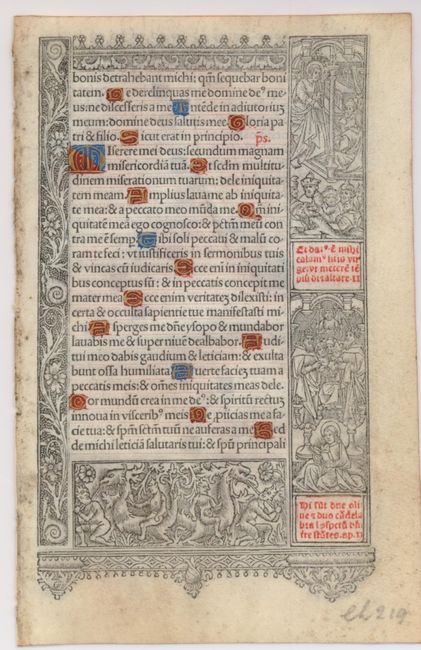 bonis detrahebant michi: qm̄ sequebar boni
tatem. Ne derelinquas me domine de⁹ me⁹
us: ne discesseris a me Intēde in adiutoriuꝫ
meum: domine deus salutis mee. Gloria pa
tri & filio. Sicut erat in principio. ps.
Miserere mei deus: secundum magnam
misericordiā tuā. Et scdm̄ multitu
dinem miserationum tuarum: dele iniquita
tem meam. Amplius laua me ab iniquita
te mea: & a peccato meo mūda me. Qm̄ ini
quitatē meā ego cognosco: & pctm̄ meū con
tra me ē semꝑ. Tibi soli peccaui & malū co
ram te feci: vt iustificeris in sermonibus tuis
& vincas cū iudicaris. Ecce eni in iniquitati
bus conceptus sū: & in peccatis concepit me
mater mea. Ecce enim veritateꝫ dilexisti: in
certa & occulta sapientie tue manifestasti mi
chi. Asperges me dn̄e ysopo & mundabor
lauabis me & super niuē dealbabor. Audi
tui meo dabis gaudium & leticiam: & exulta
bunt ossa humiliata. Auerte facieꝫ tuam a
peccatis meis: & om̄es iniquitates meas dele.
Cor mundū crea in me de⁹: & spiritū rectuꝫ
innoua in visceribꝰ meis. Ne ꝓiicias me a fa
cie tua: & spm̄ sctm̄ tuū ne auferas a me. Red
de michi leticiā salutaris tui: & spū principali
Et dat⁹ ē mihi
calam⁹
Hi sūt due oliue
⁊ duo cādela
bra
eh 219